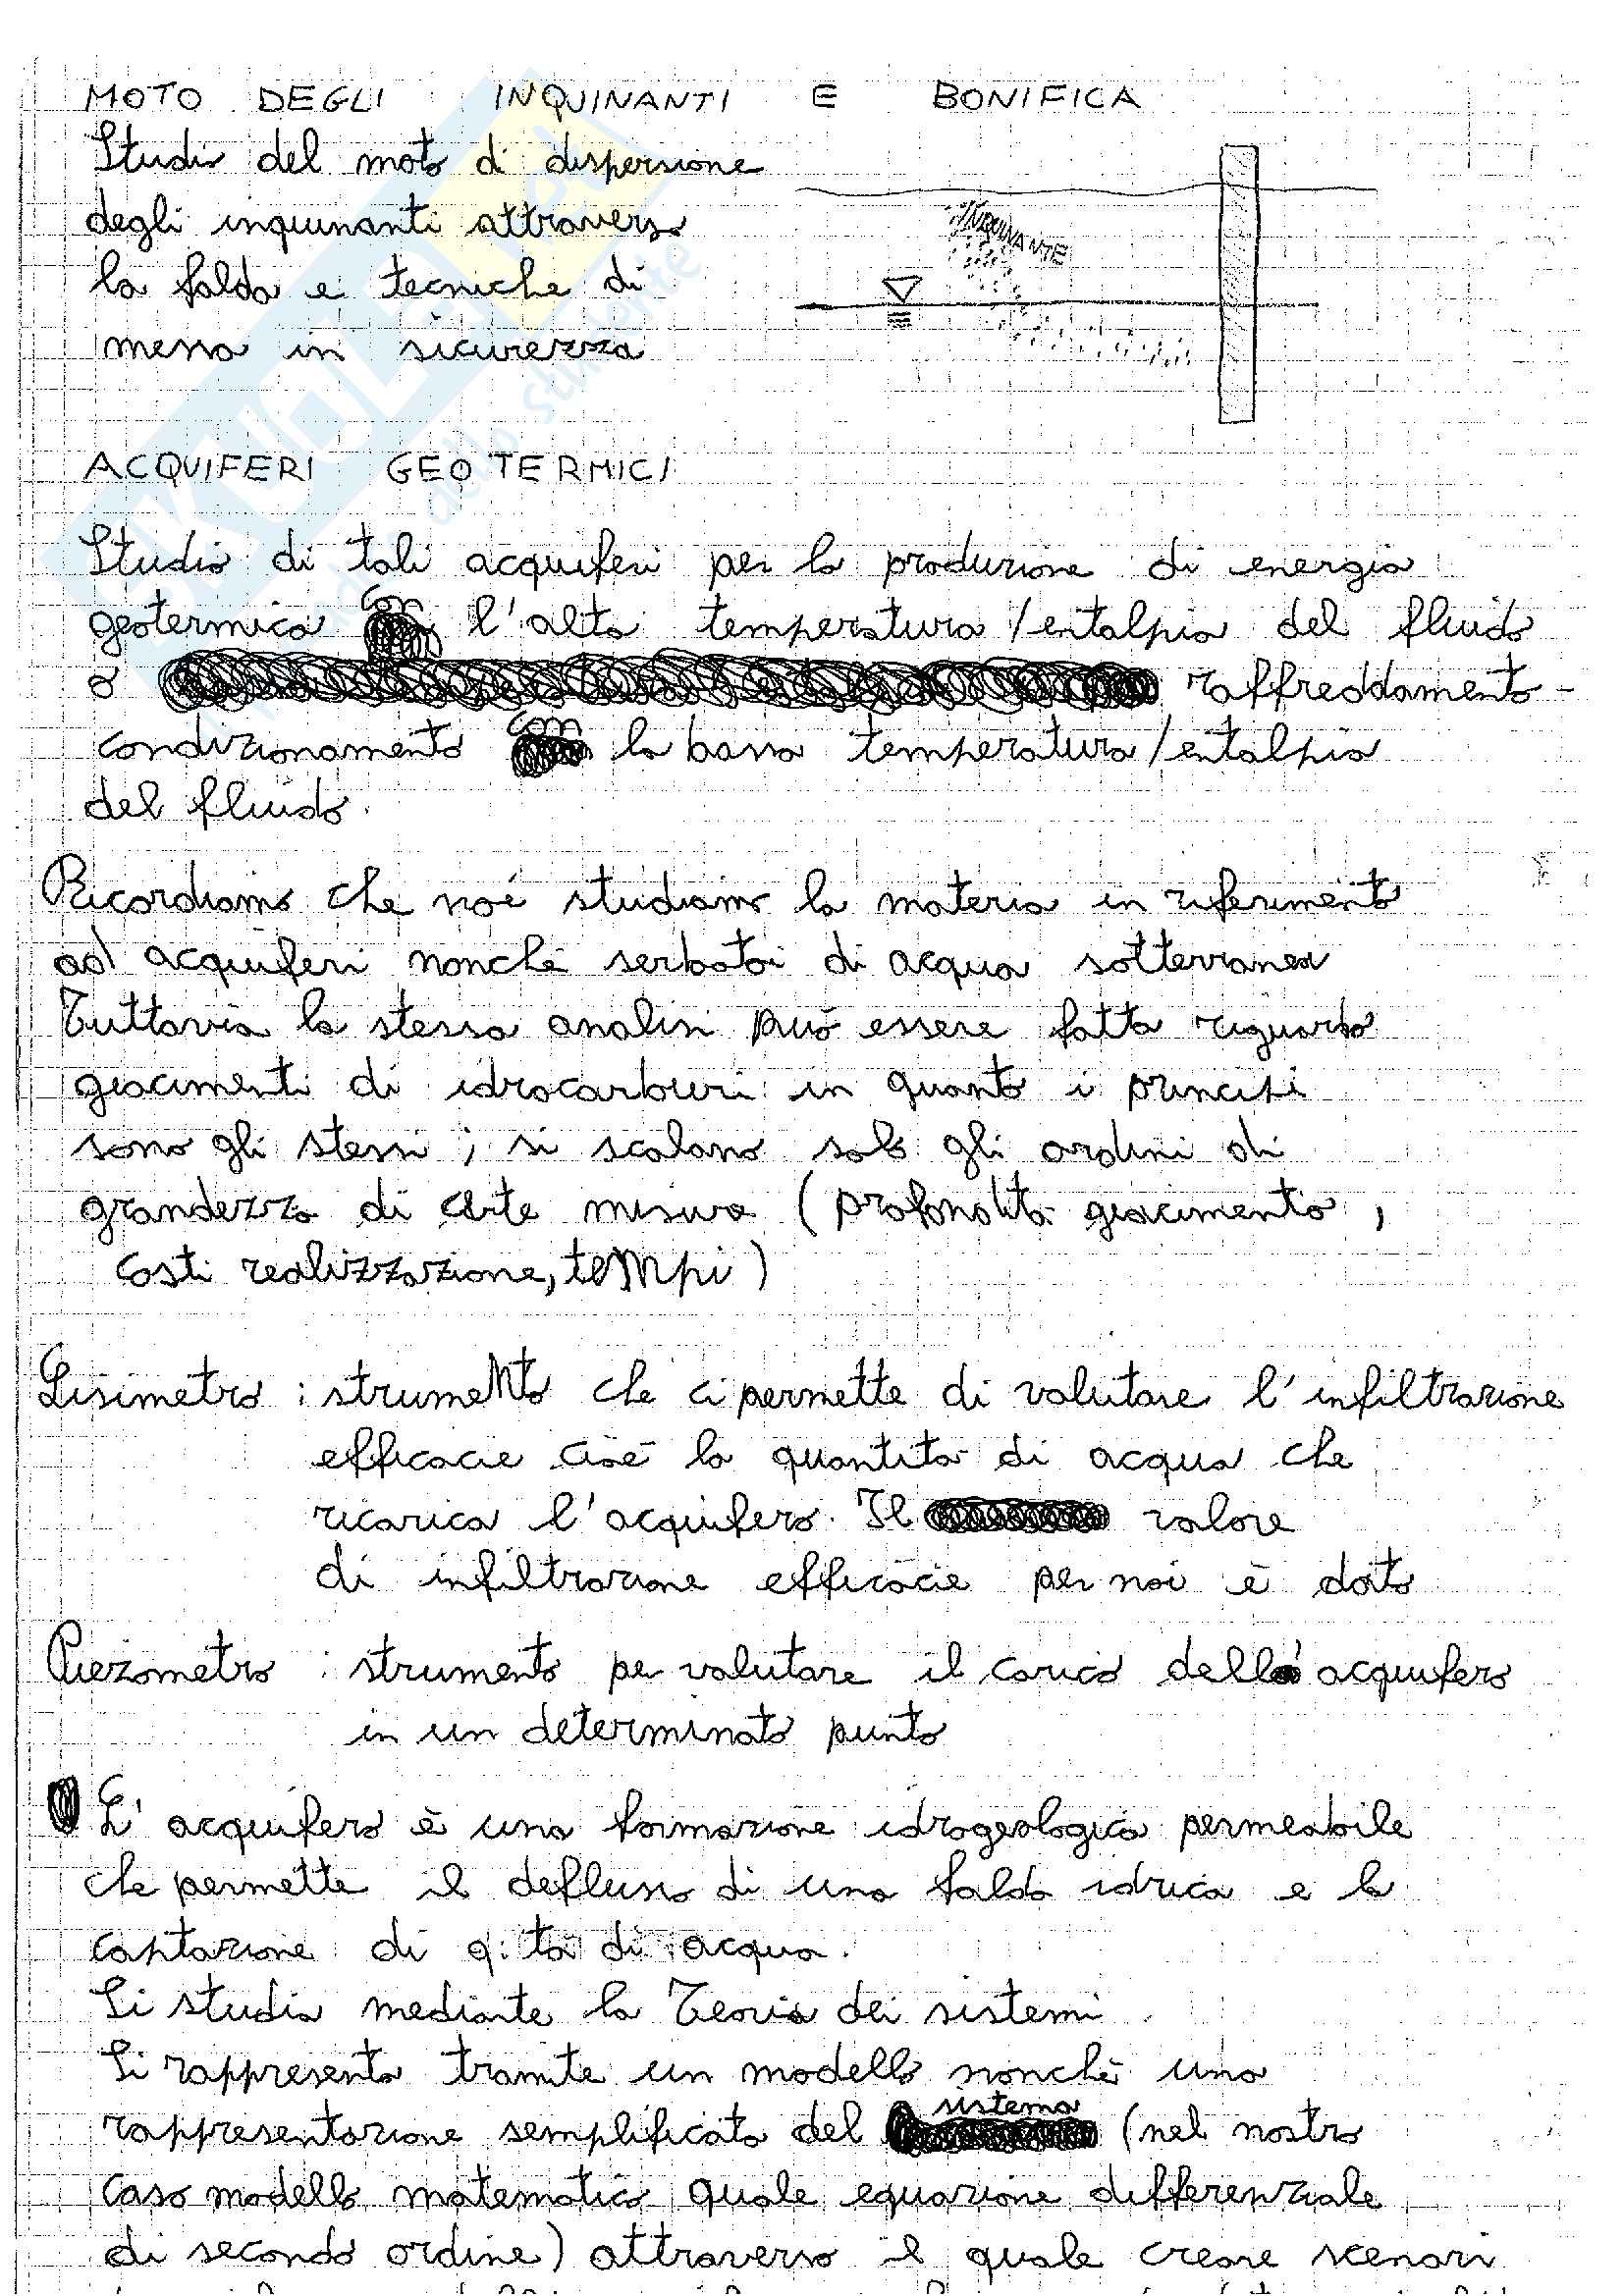 MOTO DEGLI INQUINANTI E BONIFICA
Studio del moto di dispersione
degli inquinanti attraverso
la falda e tecniche di
messa in sicurezza
INQUINANTE
ACQUIFERI GEOTERMICI
Studio di tali acquiferi per la produzione di energia
geotermica con l'alta temperatura/entalpia del fluido
o raffreddamento-
condizionamento con la bassa temperatura/entalpia
del fluido.
Ricordiamo che noi studiamo la materia in riferimento
ad acquiferi nonchè serbatoi di acqua sotterranea
Tuttavia la stessa analisi può essere fatta riguardo
giacimenti di idrocarburi in quanto i principi
sono gli stessi; si scalano solo gli ordini di
grandezza di certe misure (profondità giacimento,
costi realizzazione, tempi)
Lisimetro: strumento che ci permette di valutare l'infiltrazione
efficacie cioè la quantità di acqua che
ricarica l'acquifero. Il valore
di infiltrazione efficacie per noi è dato
Piezometro: strumento per valutare il carico dell'acquifero
in un determinato punto
L'acquifero è una formazione idrogeologica permeabile
che permette il deflusso di una falda idrica e la
captazione di q.tà di acqua.
Si studia mediante la Teoria dei sistemi
Si rappresenta tramite un modello nonchè una
rappresentazione semplificata del sistema (nel nostro
caso modello matematico quale equazione differenziale
di secondo ordine) attraverso il quale creare scenari